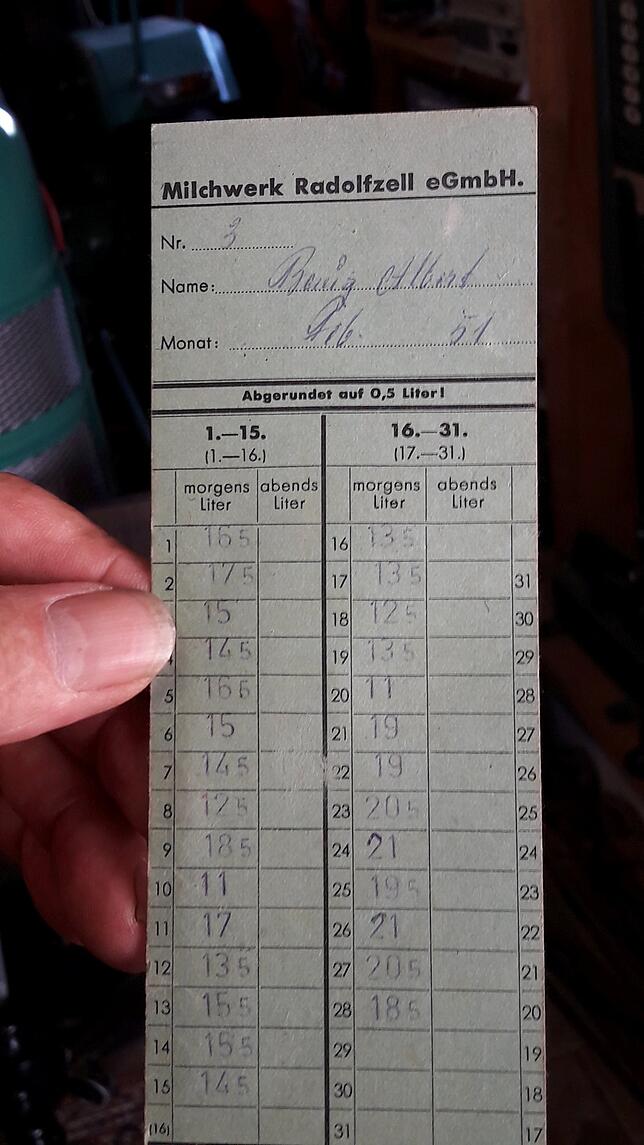 Milchwerk Radolfzell eGmbH.
Nr. 3
Name: Albert
Monat: Feb. 51
Abgerundet auf 0,5 Liter!
1.—15. 16.—31.
(1.—16.) (17.—31.)
morgens abends morgens abends
Liter Liter Liter Liter
1 16 5 16 13 5
2 17 5 17 13 5 31
15 18 12 5 30
4 14 5 19 13 5 29
5 16 5 20 11 28
6 15 21 19 27
7 14 5 22 19 26
8 12 5 23 20 5 25
9 18 5 24 21 24
10 11 25 19 5 23
11 17 26 21 22
12 13 5 27 20 5 21
13 15 5 28 18 5 20
14 15 5 29 19
15 14 5 30 18
(16) 31 17